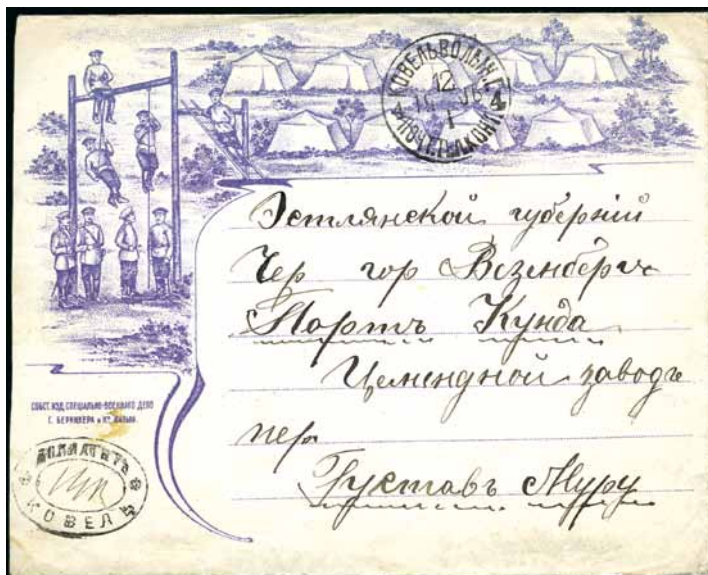 КОВЕЛЬ ВОЛЫН.Г.
12
4 4
1
ПОЧТ.ТЕЛ.КОНТ.
Эстлянской губерній
Чер гор Везенбергъ
Портъ Кунда
Цементной заводъ
пер
Густавъ Муру
СОБСТ. ИЗД. СПЕЦІАЛЬНО-ВОЕННАГО ДЕПО
Г. БЕРНИКЕРА и Кº ВИЛЬНА.
ДОПЛАТИТЬ
КОВЕЛЬ